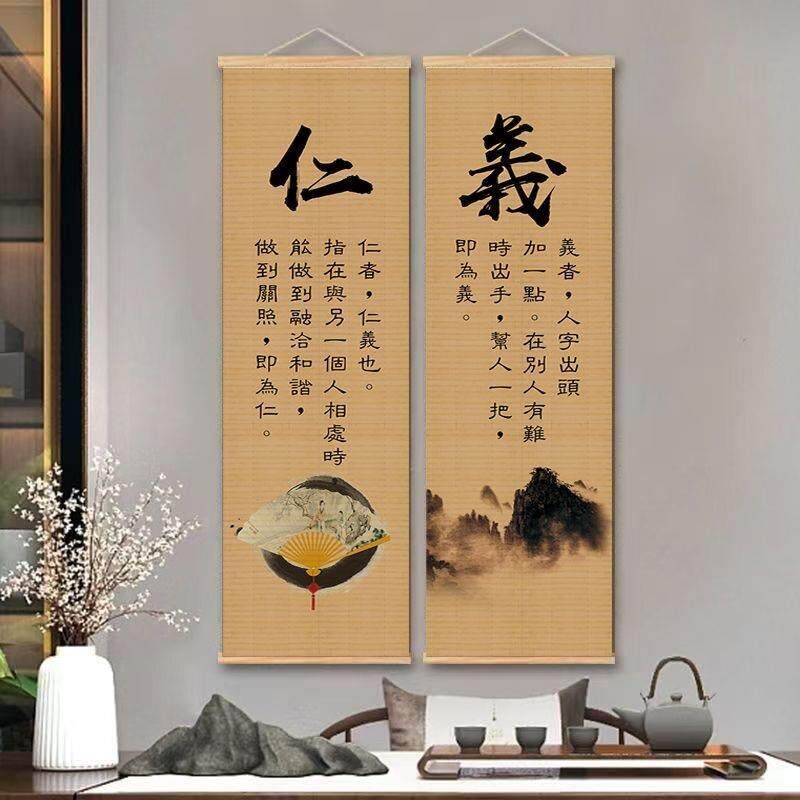 仁
仁者，仁義也。
指在與另一個人相處時
能做到融洽和諧，
做到關照，即為仁。
義
義者，人字出頭
加一點。在別人有難
時出手，幫人一把，
即為義。